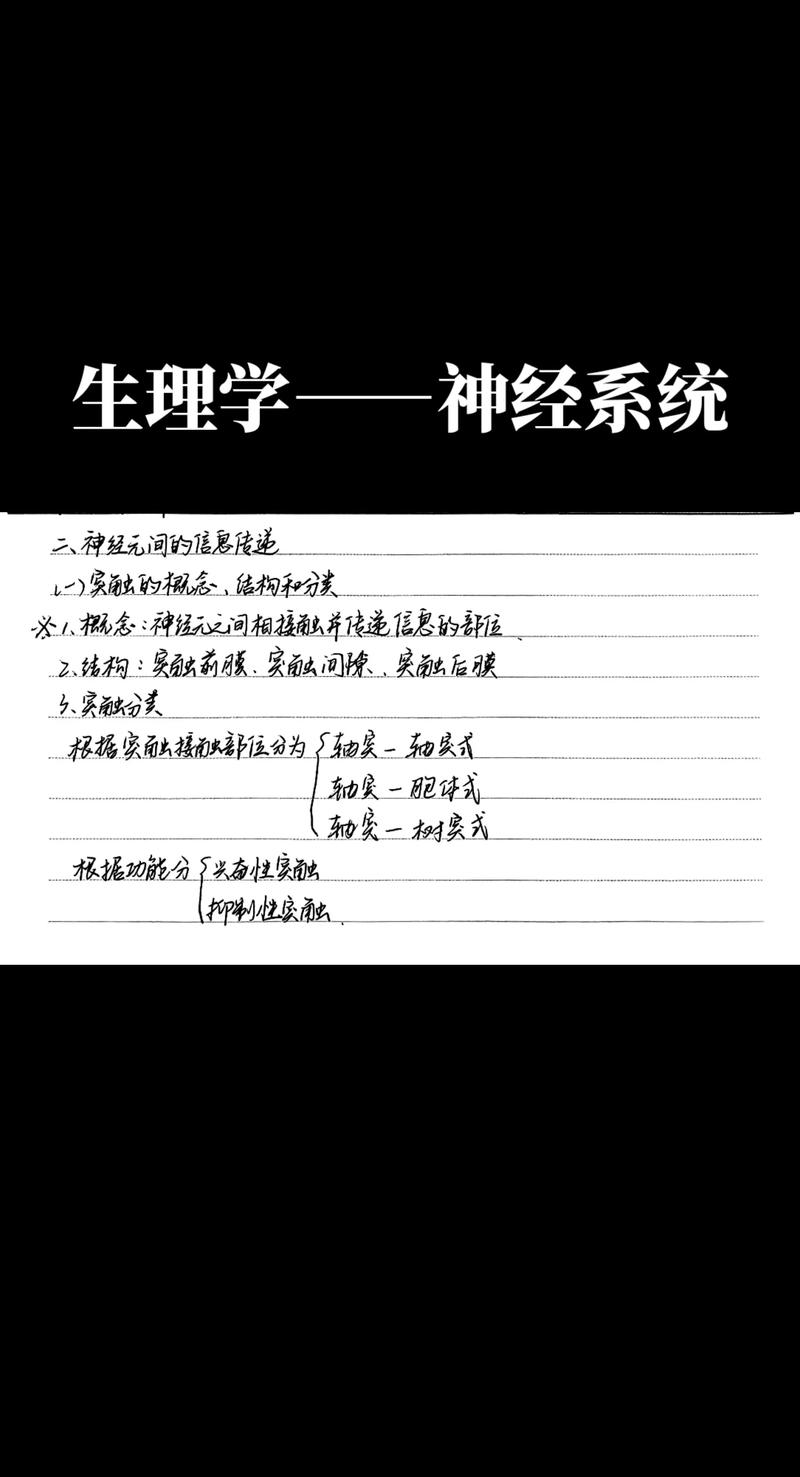 生理学——神经系统
二、神经元间的信息传递
(一)突触的概念、结构和分类
※1、概念：神经元之间相接触并传递信息的部位.
2、结构：突触前膜、突触间隙、突触后膜
3、突触分类
根据突触接触部位分为{轴突－轴突式
轴突－胞体式
轴突－树突式
根据功能分{兴奋性突触
抑制性突触.